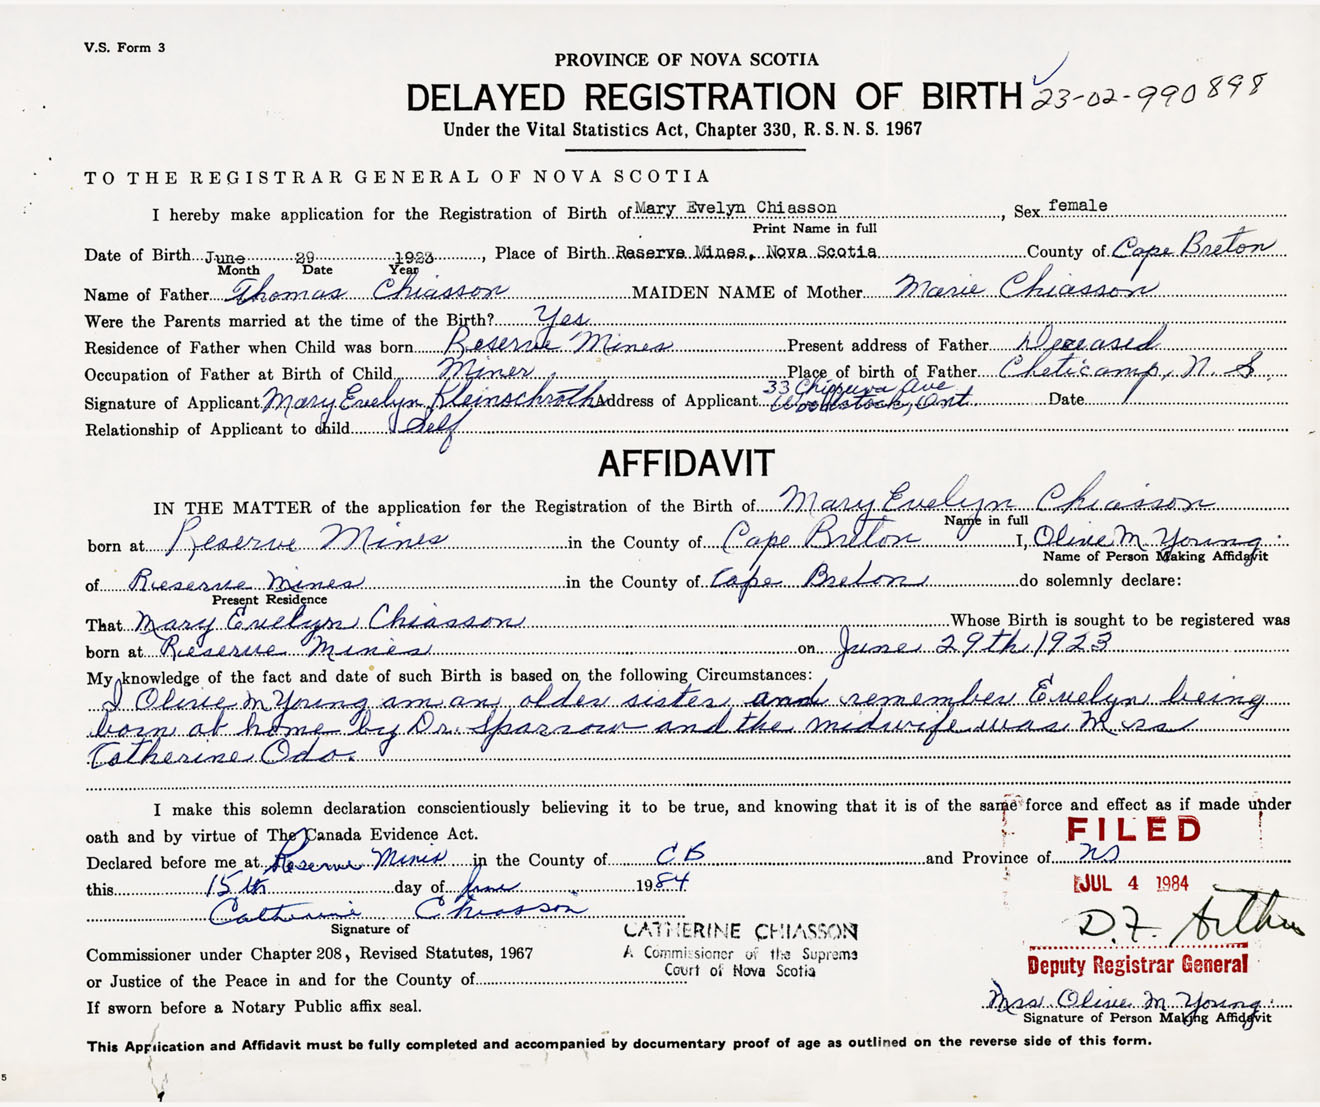 V.S. Form 3
PROVINCE OF NOVA SCOTIA
DELAYED REGISTRATION OF BIRTH 23-02-990898
Under the Vital Statistics Act, Chapter 330, R.S.N.S. 1967
TO THE REGISTRAR GENERAL OF NOVA SCOTIA
I hereby make application for the Registration of Birth of Mary Evelyn Chiasson, Sex female
Print Name in full
Date of Birth June 29 1923, Place of Birth Reserve Mines, Nova Scotia County of Cape Breton
Month Date Year
Name of Father Thomas Chiasson MAIDEN NAME of Mother Marie Chiasson
Were the Parents married at the time of the Birth? Yes
Residence of Father when Child was born Reserve Mines Present address of Father Deceased
Occupation of Father at Birth of Child Miner Place of birth of Father Cheticamp, N.S.
33 Chippewa Ave
Signature of Applicant Mary Evelyn Kleinschroth Address of Applicant Woodstock, Ont. Date
Relationship of Applicant to child Self
AFFIDAVIT
IN THE MATTER of the application for the Registration of the Birth of Mary Evelyn Chiasson
Name in full
born at Reserve Mines in the County of Cape Breton I, Olive M Young
Name of Person Making Affidavit
of Rieserve Mines in the County of Cape Breton do solemnly declare:
Present Residence
That Mary Evelyn Chiasson Whose Birth is sought to be registered was
born at Rieserve Mines on June 29th, 1923
My knowledge of the fact and date of such Birth is based on the following Circumstances:
I Olive M Young am an older sister and remember Evelyn being
born at home by Dr. Sparrow and the midwife was Mrs
Catherine Odo.
I make this solemn declaration conscientiously believing it to be true, and knowing that it is of the same force and effect as if made under
oath and by virtue of The Canada Evidence Act.
FILED
Declared before me at Reserve Mines in the County of CB and Province of NS
this 15th day of June 1984
JUL 4 1984
Catherine Chiasson
Signature of
CATHERINE CHIASSON
A Commissioner of the Supreme
Court of Nova Scotia
D.F. Arthur
Deputy Registrar General
Commissioner under Chapter 208, Revised Statutes, 1967
or Justice of the Peace in and for the County of
If sworn before a Notary Public affix seal.
Mrs. Olive M Young
Signature of Person Making Affidavit
This Application and Affidavit must be fully completed and accompanied by documentary proof of age as outlined on the reverse side of this form.
5